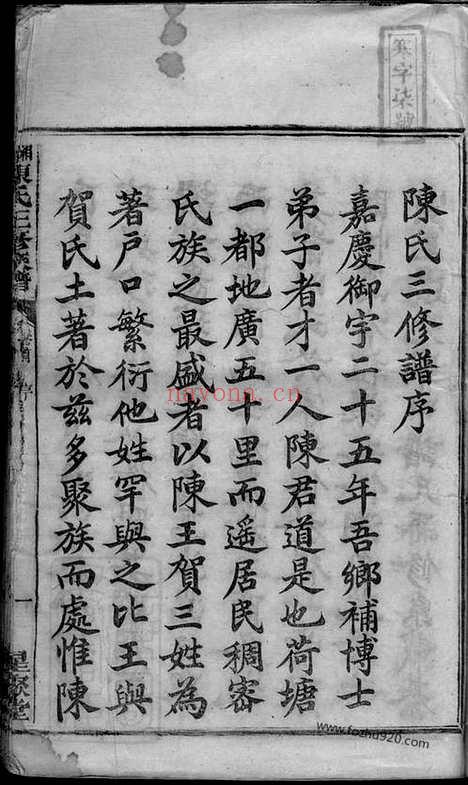 寒字柒號
陳氏三修譜序
嘉慶御宇二十五年吾鄉補博士
弟子者才一人陳君道是也荷塘
一都地廣五十里而遥居民稠密
氏族之最盛者以陳王賀三姓為
著戶口繁衍他姓罕與之比王與
賀氏土著於兹多聚族而處惟陳
陳氏三修宗譜
一
星聚堂
nayona.cn
www.fozhu920.com